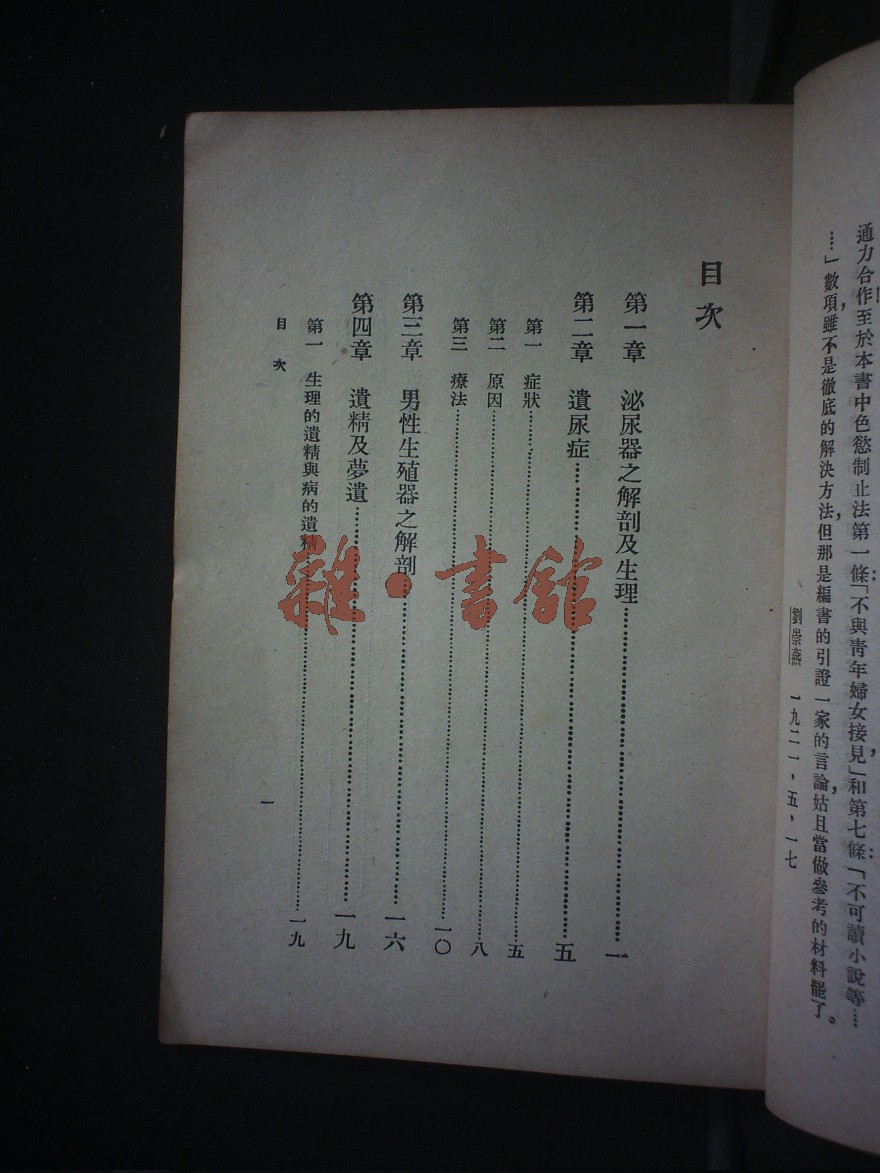 通力合作至於本書中色慾制止法第一條：「不與靑年婦女接見，」和第七條：「不可讀小說等…
…」數項，雖不是徹底的解決方法，但那是編書的引證一家的言論，姑且當做參考的材料罷了。
劉崇燕　一九二一，五，一七
目次
第一章　泌尿器之解剖及生理……一
第二章　遺尿症……五
第一　症狀……五
第二　原因……八
第三　療法……一〇
第三章　男性生殖器之解剖……一六
第四章　遺精及夢遺……一九
第一　生理的遺精與病的遺精……一九
目次
一
雜·書館